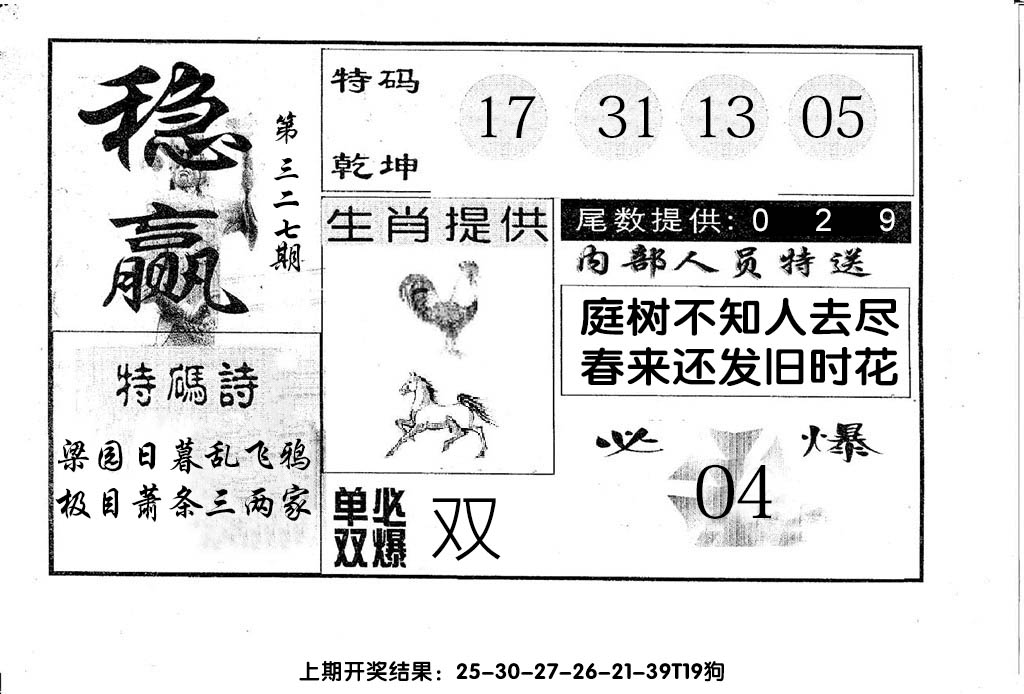 稳赢
第三二七期
特码诗
梁园日暮乱飞鸦
极目萧条三两家
特码
乾坤
17 31 13 05
生肖提供
单双必爆
双
尾数提供: 0 2 9
内部人员特送
庭树不知人去尽
春来还发旧时花
必爆
04
上期开奖结果：25-30-27-26-21-39T19狗